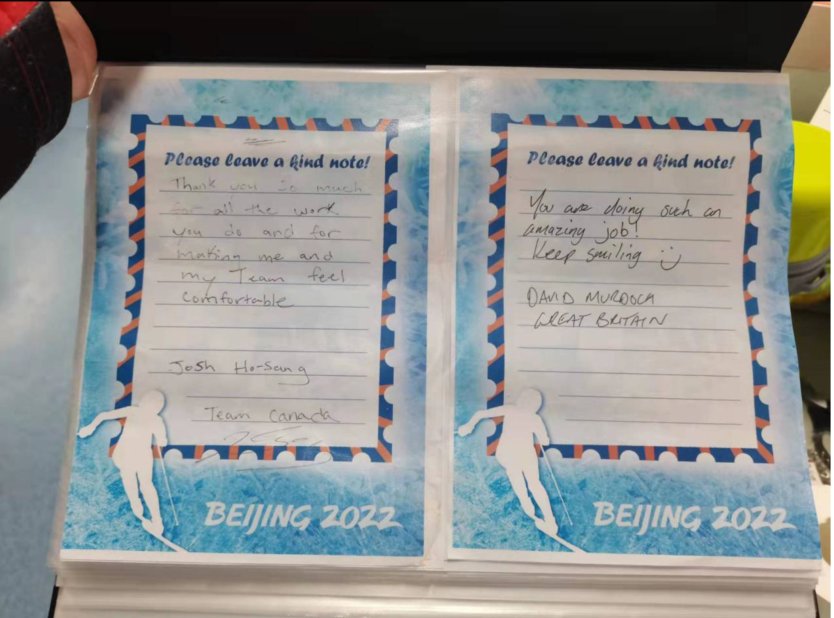 Please leave a kind note!
Thank you so much
for all the work
you do and for
making me and
my Team feel
comfortable
Josh Ho-Sang
Team Canada
BEIJING 2022
Please leave a kind note!
You are doing such an
amazing job!
Keep smiling
DAVID MURDOCH
GREAT BRITAIN
BEIJING 2022